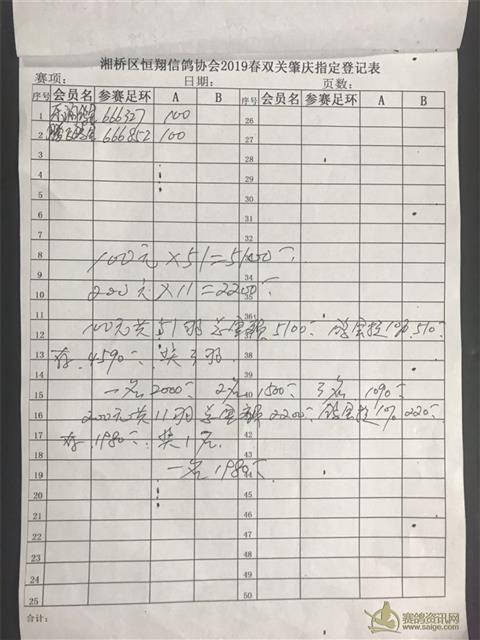 湘桥区恒翔信鸽协会2019春双关肇庆指定登记表
赛项： 日期： 页数：
序号 会员名 参赛足环 A B 序号 会员名 参赛足环 A B
1 666327 100 26
2 666852 100 27
3 28
4 29
5 30
6 31
7 32
8 33
100元×51=5100元
9 34
10 35
200元×11=2200元
11 36
12 37
100元共51羽总金额5100元 鸽会提10% 510元
13 38
存4590元 奖3羽
14 39
15 40
一名2000元 2名1500元 3名1090元
16 41
200元共11羽总金额2200元 鸽会提10% 220元
17 42
存1980元 奖1名
18 43
19 44
一名1980元
20 45
21 46
22 47
23 48
24 49
25 50
合计：
赛鸽资讯网
www.saige.com